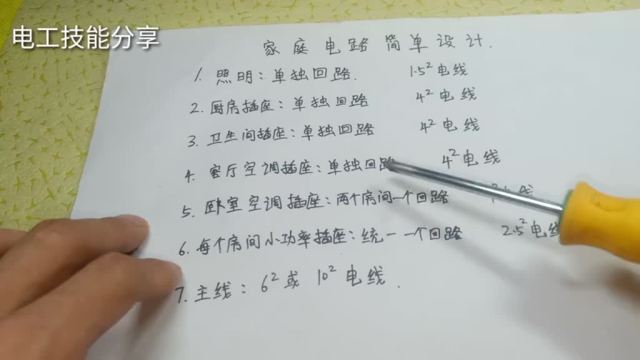 电工技能分享
家庭电路简单设计.
1. 照明: 单独回路. 1.5² 电线
2. 厨房插座: 单独回路 4² 电线
3. 卫生间插座: 单独回路 4² 电线
4. 客厅空调插座: 单独回路 4² 电线
5. 卧室空调插座: 两个房间一个回路 线
6. 每个房间小功率插座: 统一一个回路 2.5² 电线
7. 主线: 6² 或 10² 电线.